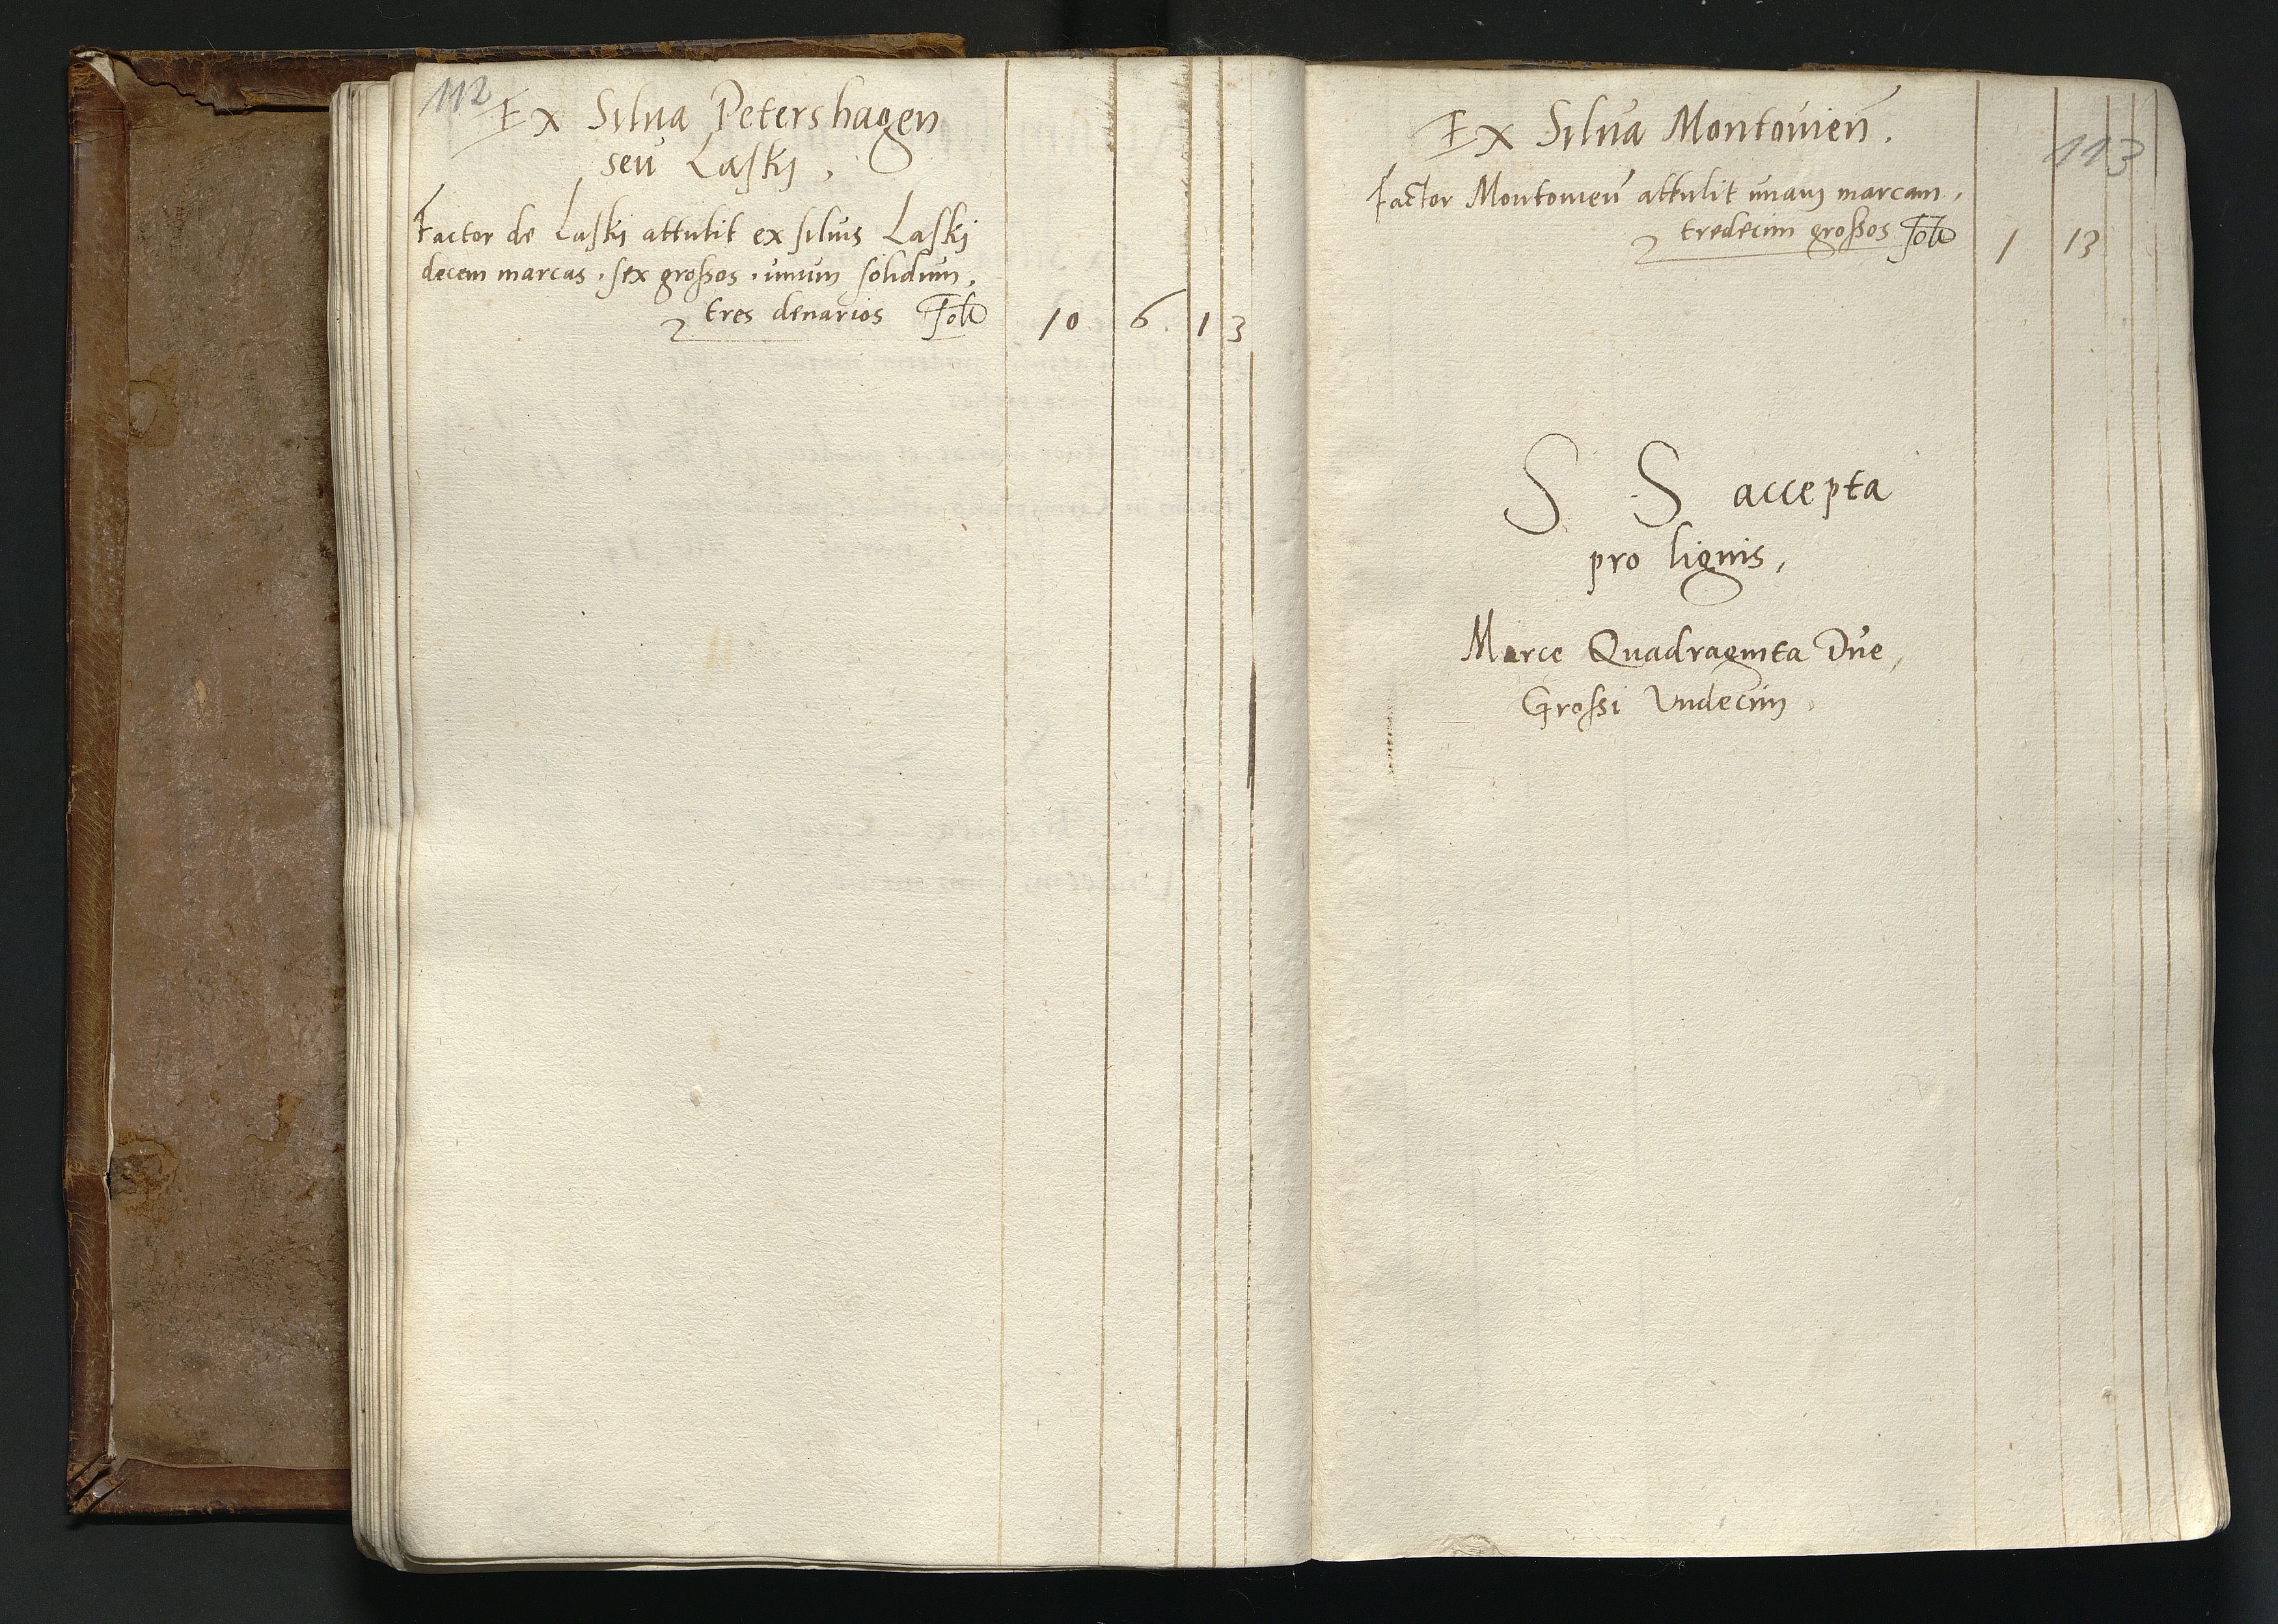 112
Ex Silua Petershagen
seu Laski,
Factor de Laski attulit ex siluis Laski
decem marcas . sex grossos . unum solidum,
tres denarios 10 6 1 3
113
Ex Silua Montouien̄.
Factor Montouien̄ attulit unam marcam,
tredecim grossos 1 13
S S accepta
pro lignis,
Marce Quadraginta Due,
Grossi Undecim